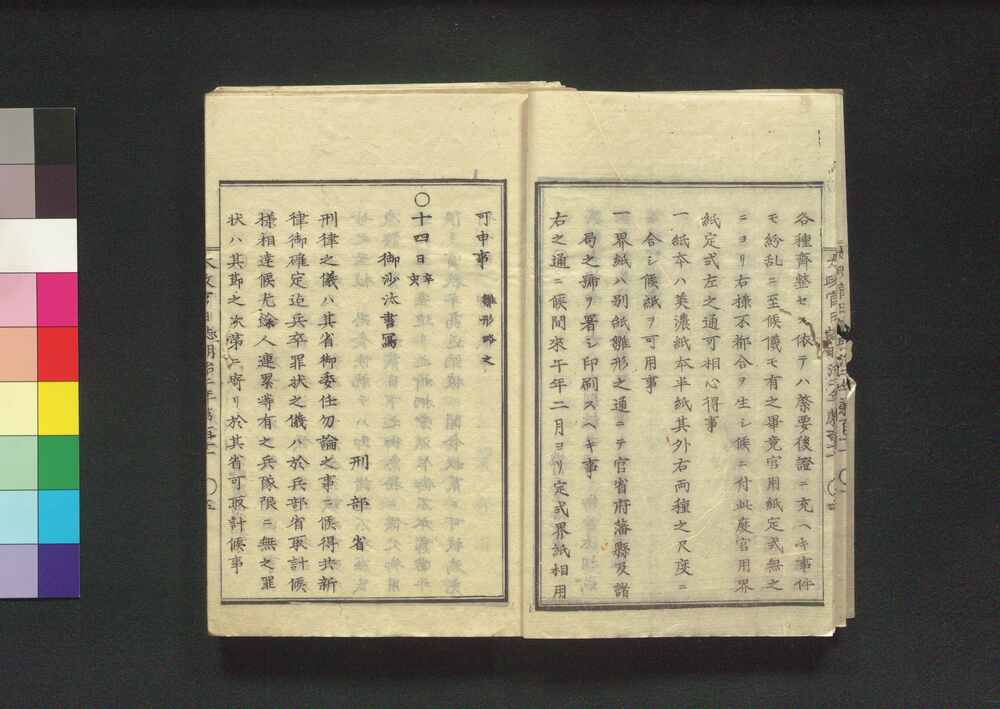 各種齊整セス依テハ緊要後證ニ充ヘキ事件
モ紛乱ニ至候儀モ有之畢竟官用紙定式無之
ニヨリ右様不都合ヲ生シ候ニ付此度官用界
紙定式左之通可相心得事
一紙本ハ美濃紙本半紙其外右両種之尺度ニ
合シ候紙ヲ可用事
一界紙ハ別紙雛形之通ニテ官省府藩縣及諸
局之號ヲ署シ印刷スヘキ事
右之通ニ候間來午年二月ヨリ定式界紙相用
可申事 雛形略之
〇十四日辛亥
御沙汰書寫
刑部省
刑律之儀ハ其省御委任勿論之事ニ候得共新
律御確定迄兵卒罪状之儀ハ於兵部省取計候
様相達候尤餘人連累等有之兵隊限ニ無之罪
状ハ其節之次第ニ寄リ於其省可取計候事